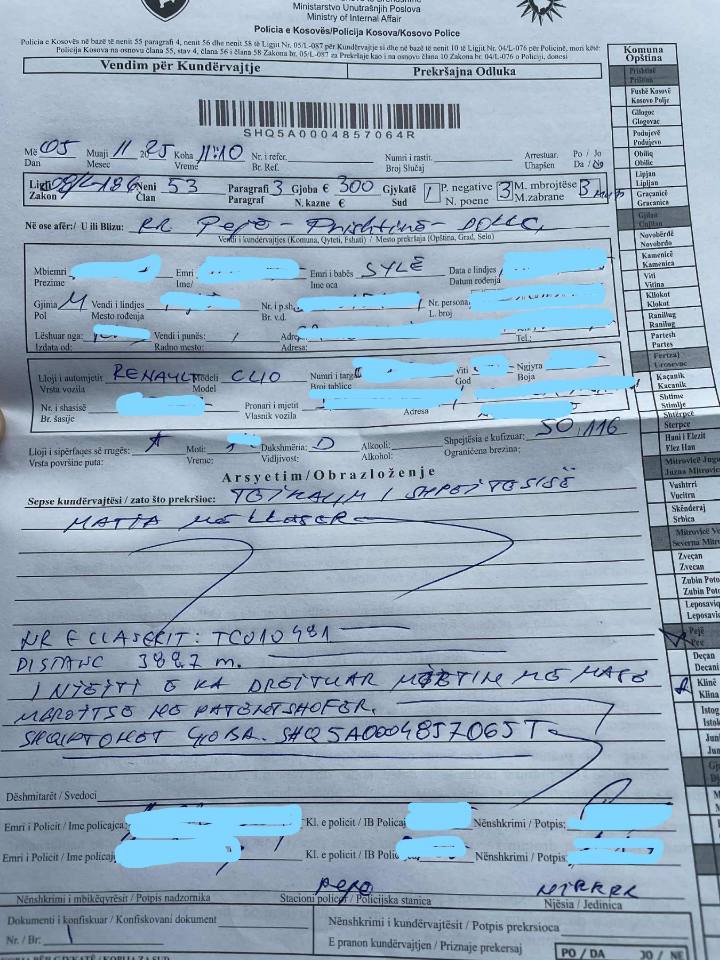 Ministarstvo Unutrašnjih Poslova
Ministry of Internal Affair
Policia e Kosovës/Policija Kosova/Kosovo Police
Policia e Kosovës në bazë të nenit 55 paragrafi 4, nenit 56 dhe nenit 58 të Ligjit Nr. 05/L-087 për Kundërvajtje si dhe në bazë të nenit 10 të Ligjit Nr. 04/L-076 për Policinë, mori këtë:
Policija Kosova na osnovu člana 55, stav 4, člana 56 i člana 58 Zakona br. 05/L-087 za Prekršaje kao i na osnovu člana 10 Zakona br. 04/L-076 o Policiji, donesi
Vendim për Kundërvajtje Prekršajna Odluka
SHQ5A0004857064R
Më 05 Muaji 11 2025 Koha 11:10 Nr. i refer. Numri i rastit. Arrestuar. Po / Jo
Dan Mesec Vreme Br. Ref. Broj Slučaj Uhapšen Da / No
Ligji 08/L-186 Neni 53 Paragrafi 3 Gjoba € 300 Gjykatë 1 P. negative 3 M. mbrojtëse 3
Zakon Član Paragraf N. kazne € Sud N. poene M.zabrane
Në ose afër:/ U ili Blizu: RR Pejë - Prishtinë -
Vendi i kundërvajtjes (Komuna, Qyteti, Fshati) / Mesto prekršaja (Opština, Grad, Selo)
Mbiemri Emri Emri i babës SYLË Data e lindjes
Prezime Ime/ Ime oca Datum rođenja
Gjinia M Vendi i lindjes Nr. i p.sh. Nr. persona
Pol Mesto rođenja Br. v.d. L. broj
Lëshuar nga: Vendi i punës: Tel.:
Izdata od: Radno mesto: Adresa:
Lloji i automjetit RENAULT Modeli CLIO Numri i targ Viti Ngjyra
Vrsta vozila Model Broj tablice God Boja
Nr. i shasisë Pronari i mjetit Adresa
Br. šasije Vlasnik vozila
Lloji i sipërfaqes së rrugës: A Moti: Dukshmëria: D Alkooli: Shpejtësia e kufizuar: 50, 116
Vrsta površine puta: Vreme: Vidljivost: Alkohol: Ograničena brezina:
Arsyetim/Obrazloženje
Sepse kundërvajtësi / zato što prekršioc: TEJKALIM I SHPEJTESISË
MATJA ME LLASER
NR E LLASERIT: TC010481
DISTANC 388.7 m.
I NJEJTI E KA DREJTUAR MJETIN ME MASË
MBROJTSE NE PATENTSHOFER.
SHQIPTOHET GJOBA. SHQ5A0004857065T
Dëshmitarët / Svedoci
Emri i Policit / Ime policajca Kl. e policit / IB Policaj Nënshkrimi / Potpis:
Emri i Policit / Ime policajca Kl. e policit / IB Policaj Nënshkrimi / Potpis:
Pejë
Nënshkrimi i mbikëqyrësit / Potpis nadzornika Stacioni policor / Policijska stanica Njësia / Jedinica
Dokumenti i konfiskuar / Konfiskovani dokument
Nr. / Br: 1
Nënshkrimi i kundërvajtësit / Potpis prekrsioca
E pranon kundërvajtjen / Priznaje prekersaj PO / DA JO / NE
Komuna
Opština
Prishtinë
Priština
Fushë Kosovë
Kosovo Polje
Gllogoc
Glogovac
Podujevë
Podujevo
Obiliq
Obilic
Lipjan
Lipljan
Graçanicë
Gracanica
Gjilan
Gnjilan
Novobërdë
Novobrdo
Kamenicë
Kamenica
Viti
Vitina
Kllokot
Klokot
Ranillug
Ranilug
Partesh
Partes
Ferizaj
Urosevac
Kaçanik
Kačanik
Shtime
Stimlje
Shtërpcë
Štrpce
Hani i Elezit
Elez Han
Mitrovicë Jug
Juzna Mitrov
Vushtrri
Vucitrn
Skënderaj
Srbica
Mitrovicë V
Severna Mitro
Zveçan
Zvecan
Zubin Poto
Zubin Poto
Leposaviq
Leposavic
Pejë
Pec
Deçan
Decani
Klinë
Klina
Istog
Istok
Jun
Jun